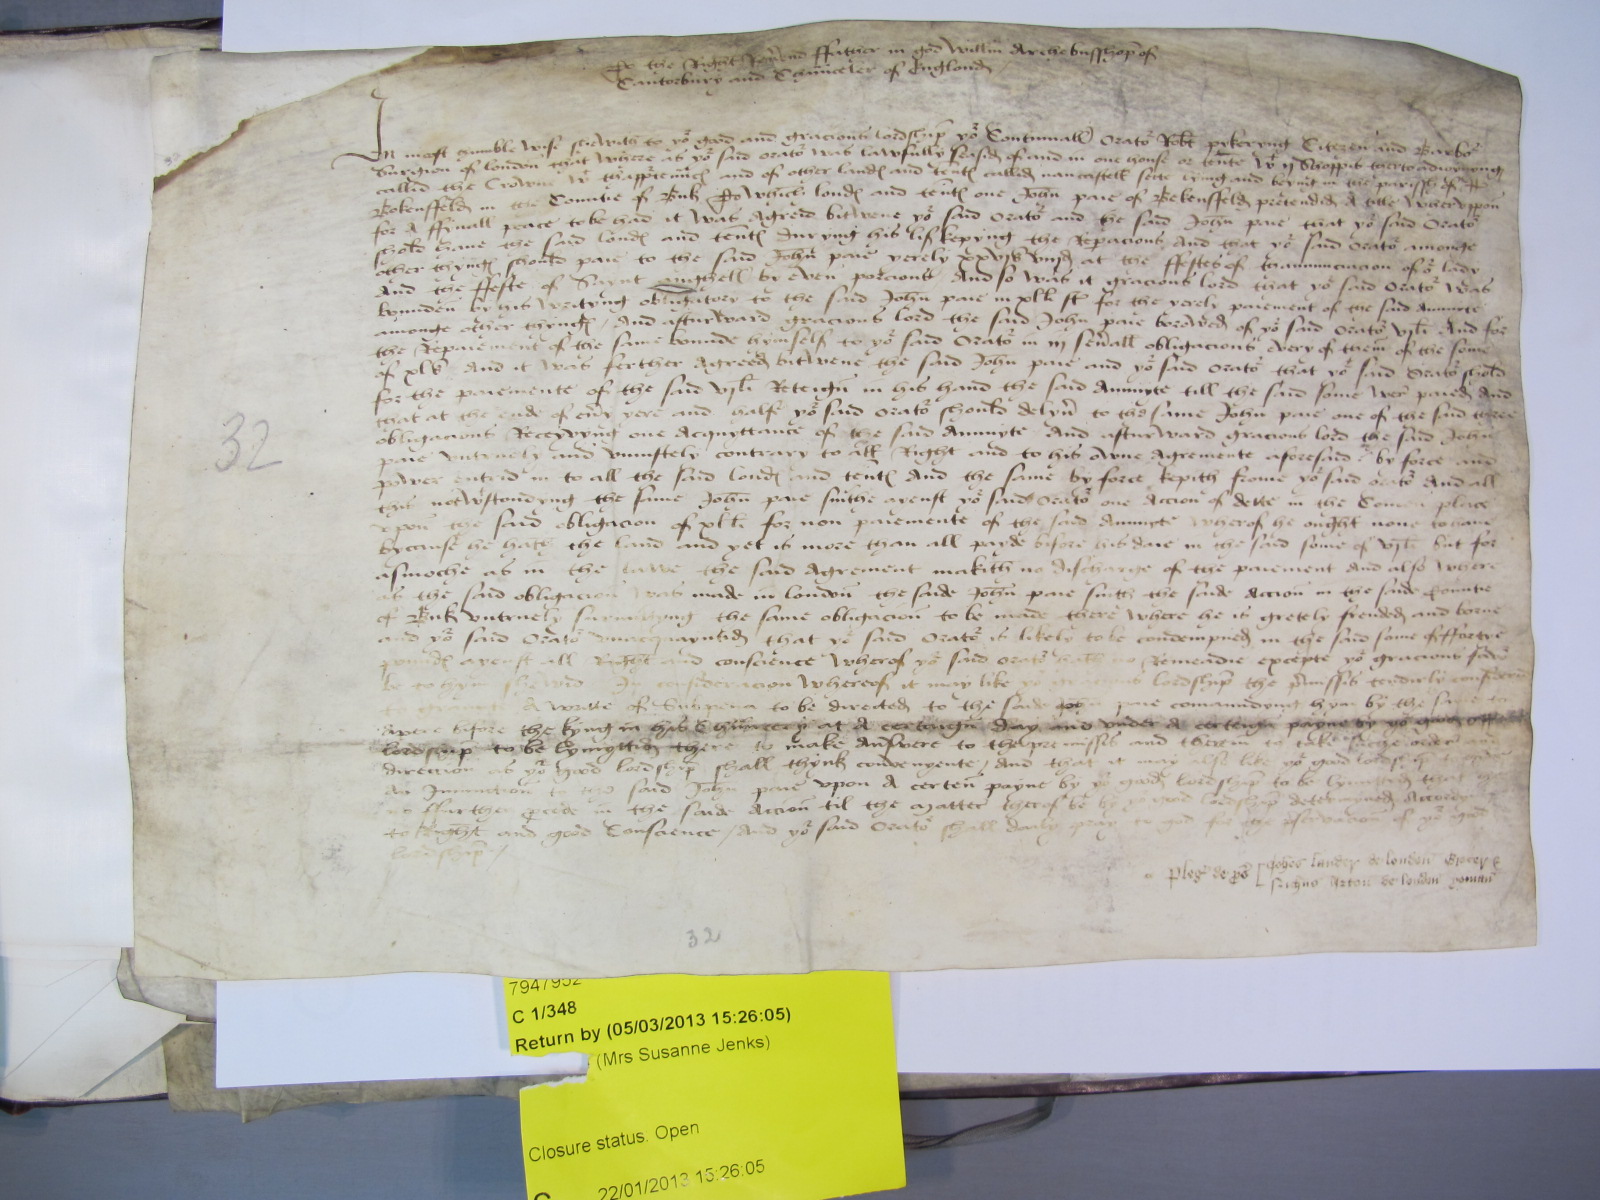 To the Right Reverend ffather in god Willm Archebusshop of
Cantorbury and Chaunceler of Englond
In most humble wise shewith to yor good and gracious lordship yor Contynuall Orator Robt pykeryng Citezen and Barbor
Surgion of london that where as yor said orator was lawfully seased of and in one house or tente wt ij Shoppis therto adioynyng
called the Crowne wt thapptennc and of other lands and tents called lying and beyng in the parissh of
Bekensfeld in the Countie of Buk To which londs and tents one John paie of Bekensfeld pretended A title Wheruppon
for A ffynall peace to be had it was Agreed bitwene yor said Orator and the said John paie that yor said Orator
shold have the said londs and tents during his lif kepyng the Repacions And that yor said Orator amonge
other thyngs should paie to the said John paie yerely xxvjs viijd at the ffestes of thannunciacion of or lady
And the ffeste of Saynt mighell by even porcions And so was it gracious lord that yor said Orator was
bounden by his writyng obligatory to the said John paie in xlli st for the yerely paiement of the said Annuyte
amonge other thyngs / And afturward gracious lord the said John paie borowed of yor said Orator vjli And for
the Repaiement of the same bounde hymself to yor said Orator in iij sevall obligacions every of them of the some
of xls And it was ferther Agreed bitwene the said John paie and yor said Orator that yor said Orator shold
for the paiemente of the said vjli Reteign in his hand the said Annuyte till the said some wer paied And
that at the ende of evy yere and halfe yor said Orator should delyv to the same John paie one of the said three
obligacions Receyvyng one Acquyttance of the said Annuyte And afturward gracious lord the said John
paie untruely and uniustely contrary to all Right and to his owne Agremente aforesaid by force and
power entrid in to all the said londs and tents And the same by force kepith frome yor said orator And all
this notwtstondyng the same John paie suithe avenst yor said Orator one Accion of dette in the Comen place
upon the said obligacion of xlli for non paiemente of the said Annuyte wherof he ought none to have
bycause he hath the land and yet is more than all payde bifore his daie in the said some of vjli but for
asmoche as in the lawe the said Agrement makith no discharge of the paiement And also where
as the said obligacion was made in london the saide John paie suith the saide Accion in the saide Countie
of Buk untruely surmittyng the same obligacion to be made there where he is gretely frended and borne
and yor said Orator unacquaynted that yor said Orator is likely to be condempned in the said some of ffortye
pounds avenst all Right and conscience wherof yor said Orator hath no Remeadie excepte yor gracious favor
be to hym shewid In consideracion whereof it may like yor gracious lordship the pmisses tenderly considered
to graunt A writte of Subpena to be directed to the saide John paie comaundyng hym by the same to
apere before the kyng in his Chauncery at A certeyn day and under A certeyn payne by yor good
lordship to be lymytted there to make Answere to the premisses and therin to take suche order and
direccion as yor good lordship shall thynk convenyente / And that it may also like yor good lordship to graunt
An Iniunccion to the said John paie upon A certen payne by yor good lordship to be lymytted that he
no ffurther procede in the saide Accion til the matter therof be by yor good lordship determyned Accordyng
to Right and good Conscience / And yor said Orator shall daily pray to god for the pservacion of yor good
lordship /
Pleg de ps Johes lander de london Grocer &
Arton de london yoman
32
32
7947952
C 1/348
Return by (05/03/2013 15:26:05)
(Mrs Susanne Jenks)
Closure status. Open
22/01/2013 15:26:05